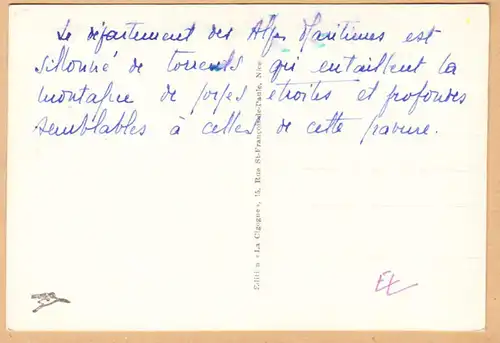 Le département des Alpes Maritimes est
sillonné de torrents qui entaillent la
montagne de gorges étroites et profondes
semblables à celles de cette gravure.
Edition «La Cigogne», 15, Rue St-François-de-Paule, Nice
EX